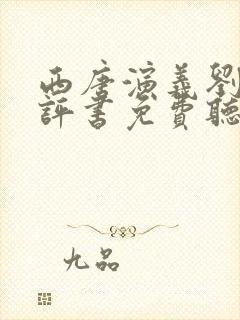 西唐演義劉
評書免費聽
九品